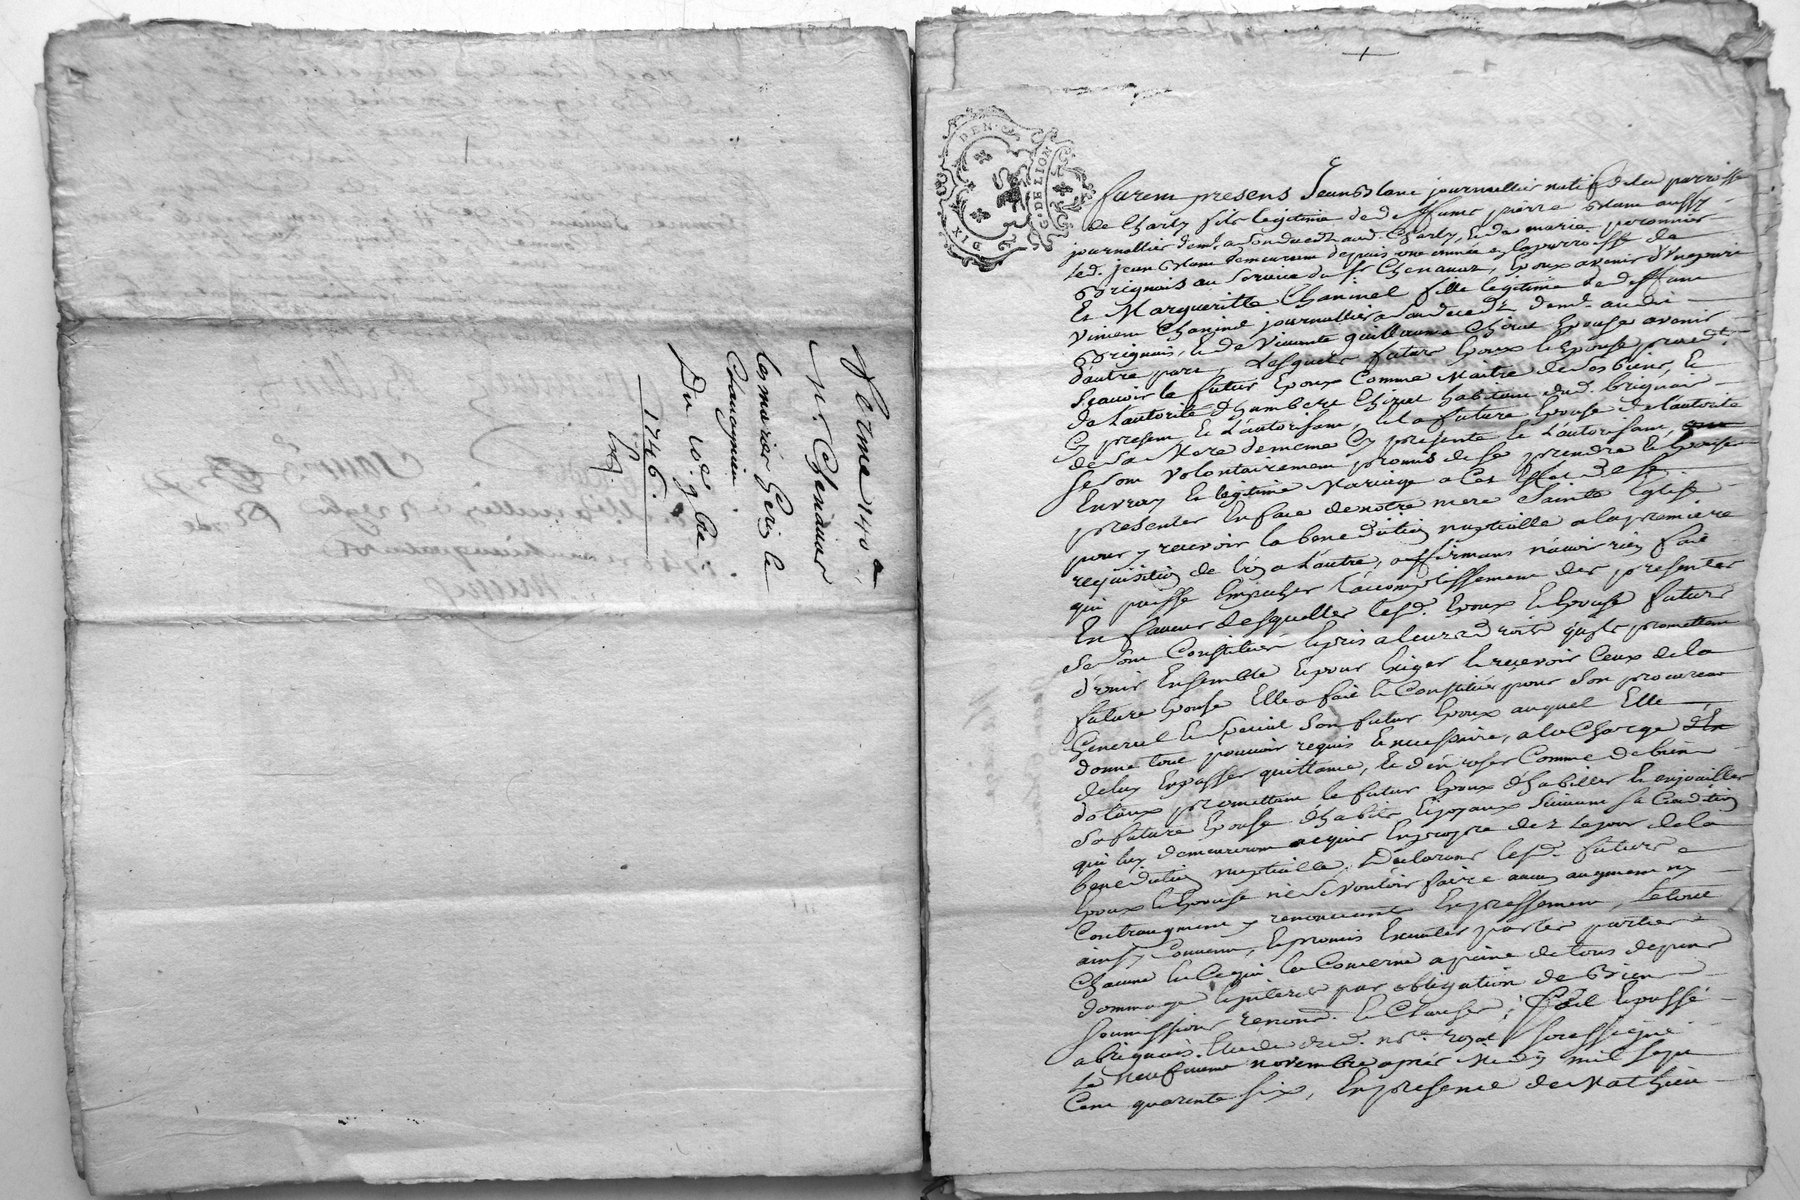 ferme 140 #
Mr Chenavar
le mercier Geri le
Du 10e 9bre
1746.
DIX DEN.
G. DE LION
furent presens Jean Blanc journallier natif de la parroisse
de Charly fils legitime de deffunt pierre Blanc aussy
journallier demt a son deceds aud. Charly, et de marie peronnier
led. jean Blanc demeurant depuis une année en la parroisse de
Brignais au service du Sr Chenavar, Epoux avenir d'une part
Et Margueritte Chaninel fille legitime de deffunt
Vinient Chaninel journallier a son deceds demt. audi
Brignais, et de Vincente Chirat Epouse avenir
d'autre part, Lesquels futurs Epoux et Epouse proced.t
Scavoir le futur Epoux Comme Maitre de ses biens, et
de l'autorité d'humbert Chirat habitant dud. brignais
Cy present et l'autorisant, et la future Epouse de l'autorité
de sa Mere de meme Cy presente et l'autorisant,
se sont volontairement promis de se prendre et Epouser
En vray et legitime Mariage a Cet Effet de se
presenter En face de notre mere Sainte Eglise
pour y recevoir la benediction nuptialle a la premiere
requisition de l'un a l'autre, affirmans n'avoir rien fait
qui puisse Empecher l'accomplissement des presentes
En faveur desquelles lesd. Epoux et Epouse futurs
se sont Constitués et pris a leurs droits qu'ils promettent
d'unir Ensemble et pour Exiger et recevoir Ceux de la
future Epouse Elle a fait et Constitué pour son procureur
General et special son futur Epoux auquel Elle
donne tout pouvoir requis et necessaire, a la Charge d'En
de luy En passer quittance, et d'en user Comme de biens
dotaux promettant le futur Epoux d'habiller et enjoailler
sa future Epouse d'habits et joyaux suivant sa Condition
qui luy demeureront acquis En propre dez le jour de la
benediction nuptialle. Declarans lesd. futurs
Epoux et Epouse ne se vouloir faire aucun augment ny
Contraugment y renonceants Expressement, Le tout
ainsy Convenu, et promis Executer par les parties
Chacune En Ce qui les Concerne a peine de tous depens
dommages et interets par obligation de Biens
soumissions renonc. et Clauses; fait et passé
a brignais, Etude du d. nre. royal soussigné
Le neufvieme novembre apres Midy mil sept
Cent quarente six, En presence de Mathieu